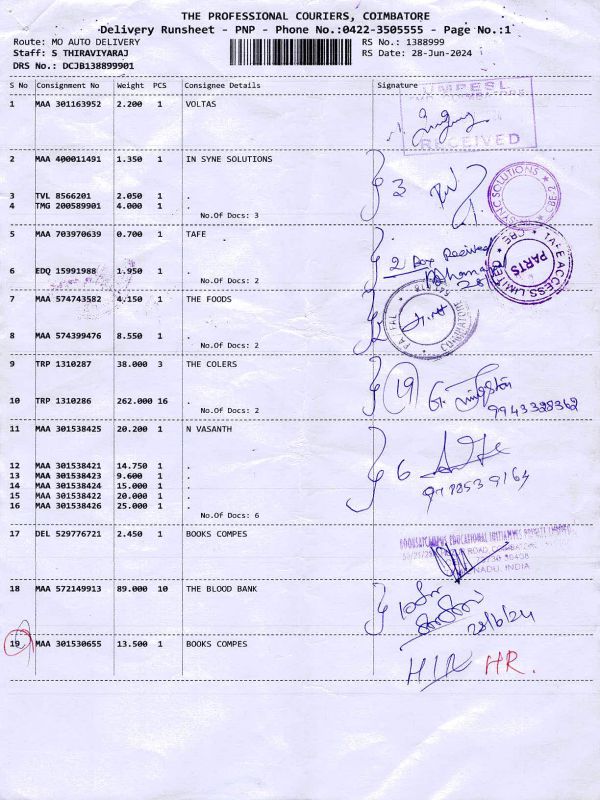 THE PROFESSIONAL COURIERS, COIMBATORE
Delivery Runsheet - PNP - Phone No.:0422-3505555 - Page No.:1
Route: MO AUTO DELIVERY RS No.: 1388999
Staff: S THIRAVIYARAJ RS Date: 28-Jun-2024
DRS No.: DCJB138899901
S No Consignment No Weight PCS Consignee Details Signature
1 MAA 301163952 2.200 1 VOLTAS
RECEIVED
2 MAA 400011491 1.350 1 IN SYNE SOLUTIONS
3
3 TVL 8566201 2.050 1 .
4 TMG 200589901 4.000 1 .
No.Of Docs: 3
5 MAA 703970639 0.700 1 TAFE
2 Box Received
6 EDQ 15991988 1.950 1 .
No.Of Docs: 2
TAFE ACCESS LIMITED
PARTS
CBE
7 MAA 574743582 4.150 1 THE FOODS
8 MAA 574399476 8.550 1 .
No.Of Docs: 2
9 TRP 1310287 38.000 3 THE COLERS
19
9943328362
10 TRP 1310286 262.000 16 .
No.Of Docs: 2
11 MAA 301538425 20.200 1 N VASANTH
6
12 MAA 301538421 14.750 1 .
13 MAA 301538423 9.600 1 .
14 MAA 301538424 15.000 1 .
15 MAA 301538422 20.000 1 .
16 MAA 301538426 25.000 1 .
No.Of Docs: 6
17 DEL 529776721 2.450 1 BOOKS COMPES
NADU, INDIA
18 MAA 572149913 89.000 10 THE BLOOD BANK
28/6/24
19 MAA 301530655 13.500 1 BOOKS COMPES
HR.